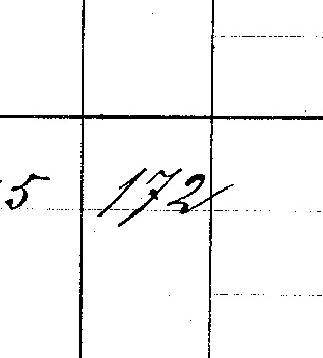 5 172